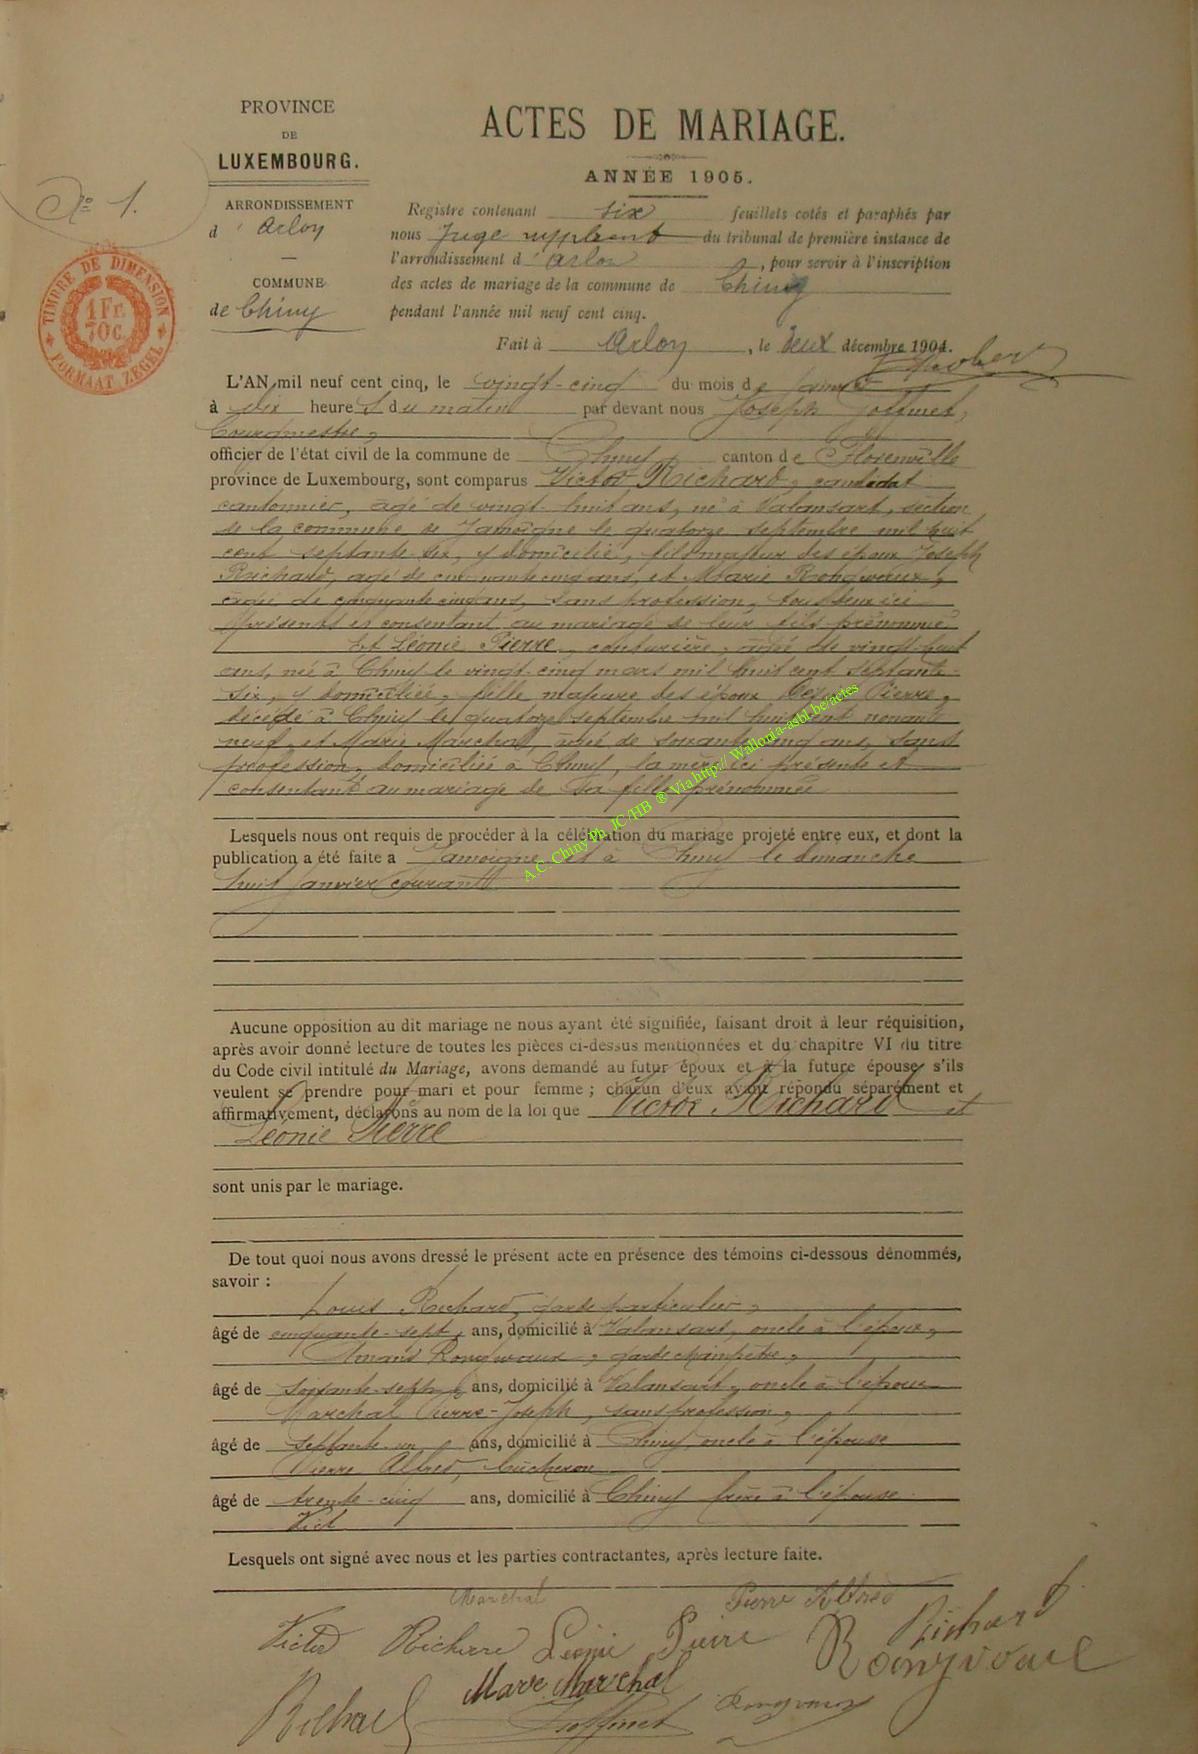 PROVINCE
DE
LUXEMBOURG.
ARRONDISSEMENT
d'Arlon
COMMUNE
de Chiny
No 1.
TIMBRE DE DIMENSION
1 Fr.
70 C.
FORMAAT ZEGEL
ACTES DE MARIAGE.
ANNÉE 1905.
Registre contenant six feuillets cotés et paraphés par
nous Juge suppléant du tribunal de première instance de
l'arrondissement d'Arlon, pour servir à l'inscription
des actes de mariage de la commune de Chiny
pendant l'année mil neuf cent cinq.
Fait à Arlon, le deux décembre 1904.
L'AN mil neuf cent cinq, le vingt-cinq du mois de janvier
à dix heures du matin par devant nous Joseph Joffinet,
Bourgmestre,
officier de l'état civil de la commune de Chiny canton de Florenville
province de Luxembourg, sont comparus Victor Richard, candidat
cantonnier, âgé de vingt-huit ans, né à Valansart, section
de la commune de Jamoigne le quatorze septembre mil huit
cent septante-six, y domicilié, fils majeur des époux Joseph
Richard, âgé de cinquante cinq ans, et Marie Rongvaux,
âgée de cinquante cinq ans, sans profession, tous deux ici
présents et consentant au mariage de leur fils prénommé
Et Léonie Pierre, couturière, âgée de vingt-huit
ans, née à Chiny le vingt-cinq mars mil huit cent septante
six, y domiciliée, fille majeure des époux Pierre,
décédé à Chiny le quatorze septembre mil huit cent nonante
neuf, et Marie Marchal, âgée de soixante cinq ans, sans
profession, domiciliée à Chiny, la mère ici présente et
consentant au mariage de sa fille prénommée
Lesquels nous ont requis de procéder à la célébration du mariage projeté entre eux, et dont la
publication a été faite à Jamoigne et à Chiny le dimanche
huit janvier courant
A.C. Chiny Ph. JC/HB ® Via http:// Wallonia-asbl.be/actes
Aucune opposition au dit mariage ne nous ayant été signifiée, faisant droit à leur réquisition,
après avoir donné lecture de toutes les pièces ci-dessus mentionnées et du chapitre VI du titre
du Code civil intitulé du Mariage, avons demandé au futur époux et à la future épouse s'ils
veulent se prendre pour mari et pour femme ; chacun d'eux ayant répondu séparément et
affirmativement, déclarons au nom de la loi que Victor Richard et
Léonie Pierre
sont unis par le mariage.
De tout quoi nous avons dressé le présent acte en présence des témoins ci-dessous dénommés,
savoir :
Louis Richard, garde particulier,
âgé de cinquante-sept, ans, domicilié à Valansart, oncle à l'époux,
Rongvaux, garde champêtre,
âgé de soixante-sept ans, domicilié à Valansart, oncle à l'époux
Marchal Pierre-Joseph, sans profession,
âgé de septante-un ans, domicilié à Chiny, oncle à l'épouse
Pierre Alfred, bûcheron
âgé de trente-cinq ans, domicilié à Chiny frère à l'épouse.
Vict
Lesquels ont signé avec nous et les parties contractantes, après lecture faite.
Marchal Pierre Alfred
Victor Richard Léonie Pierre Richard
Rongvaux
Marie Marchal
Richard Joffinet Rongvaux